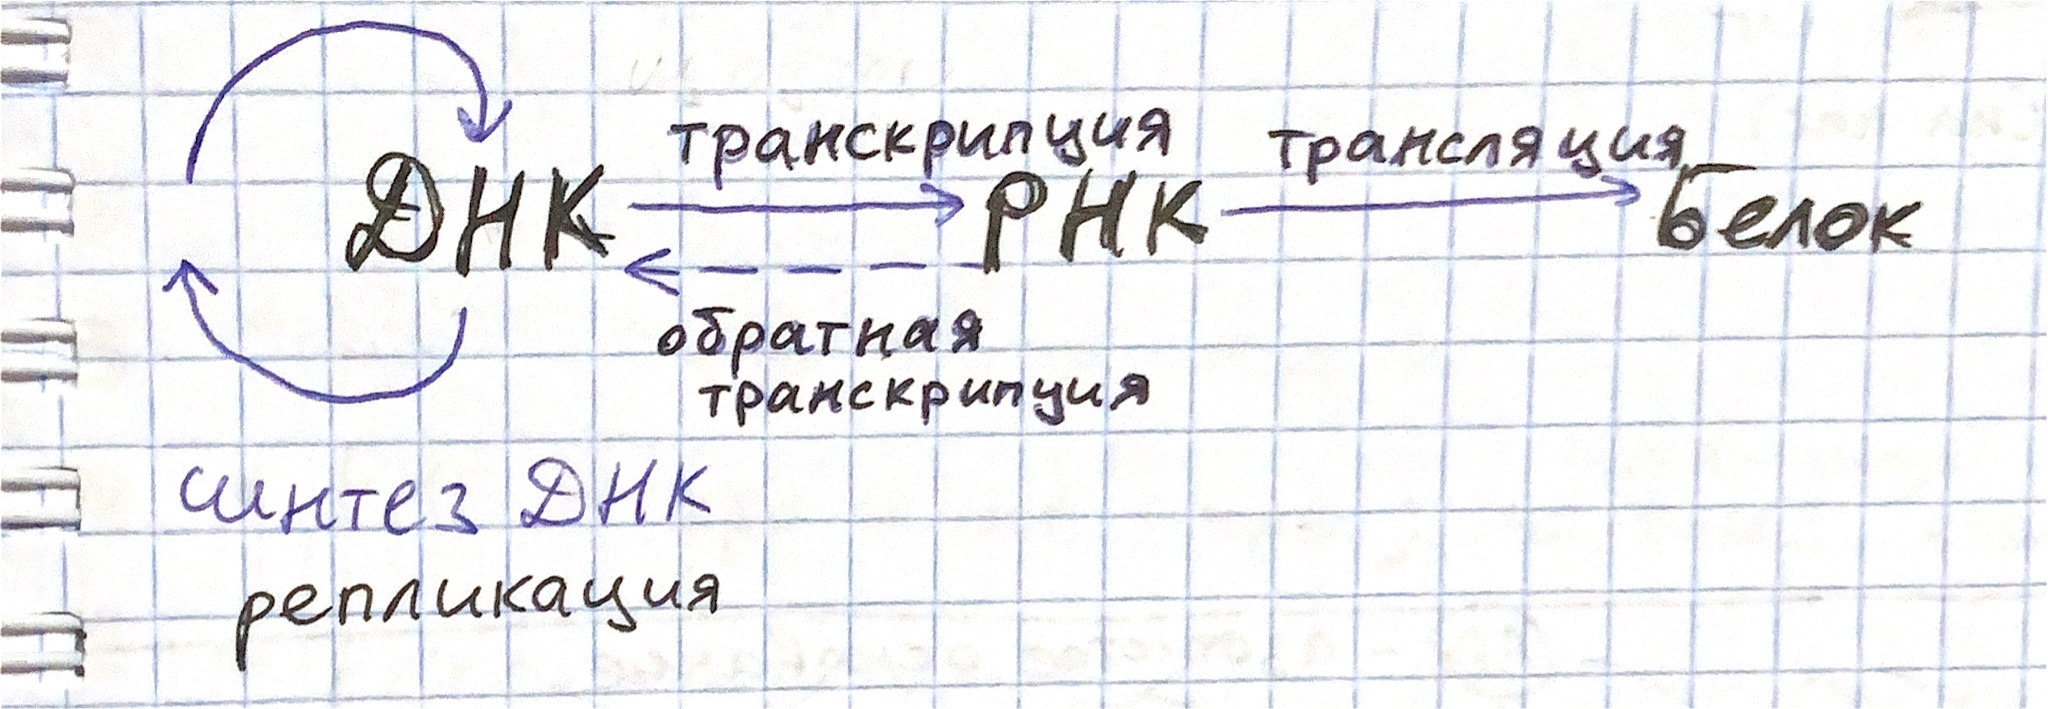 транскрипция трансляция
ДНК РНК Белок
обратная
транскрипция
синтез ДНК
репликация